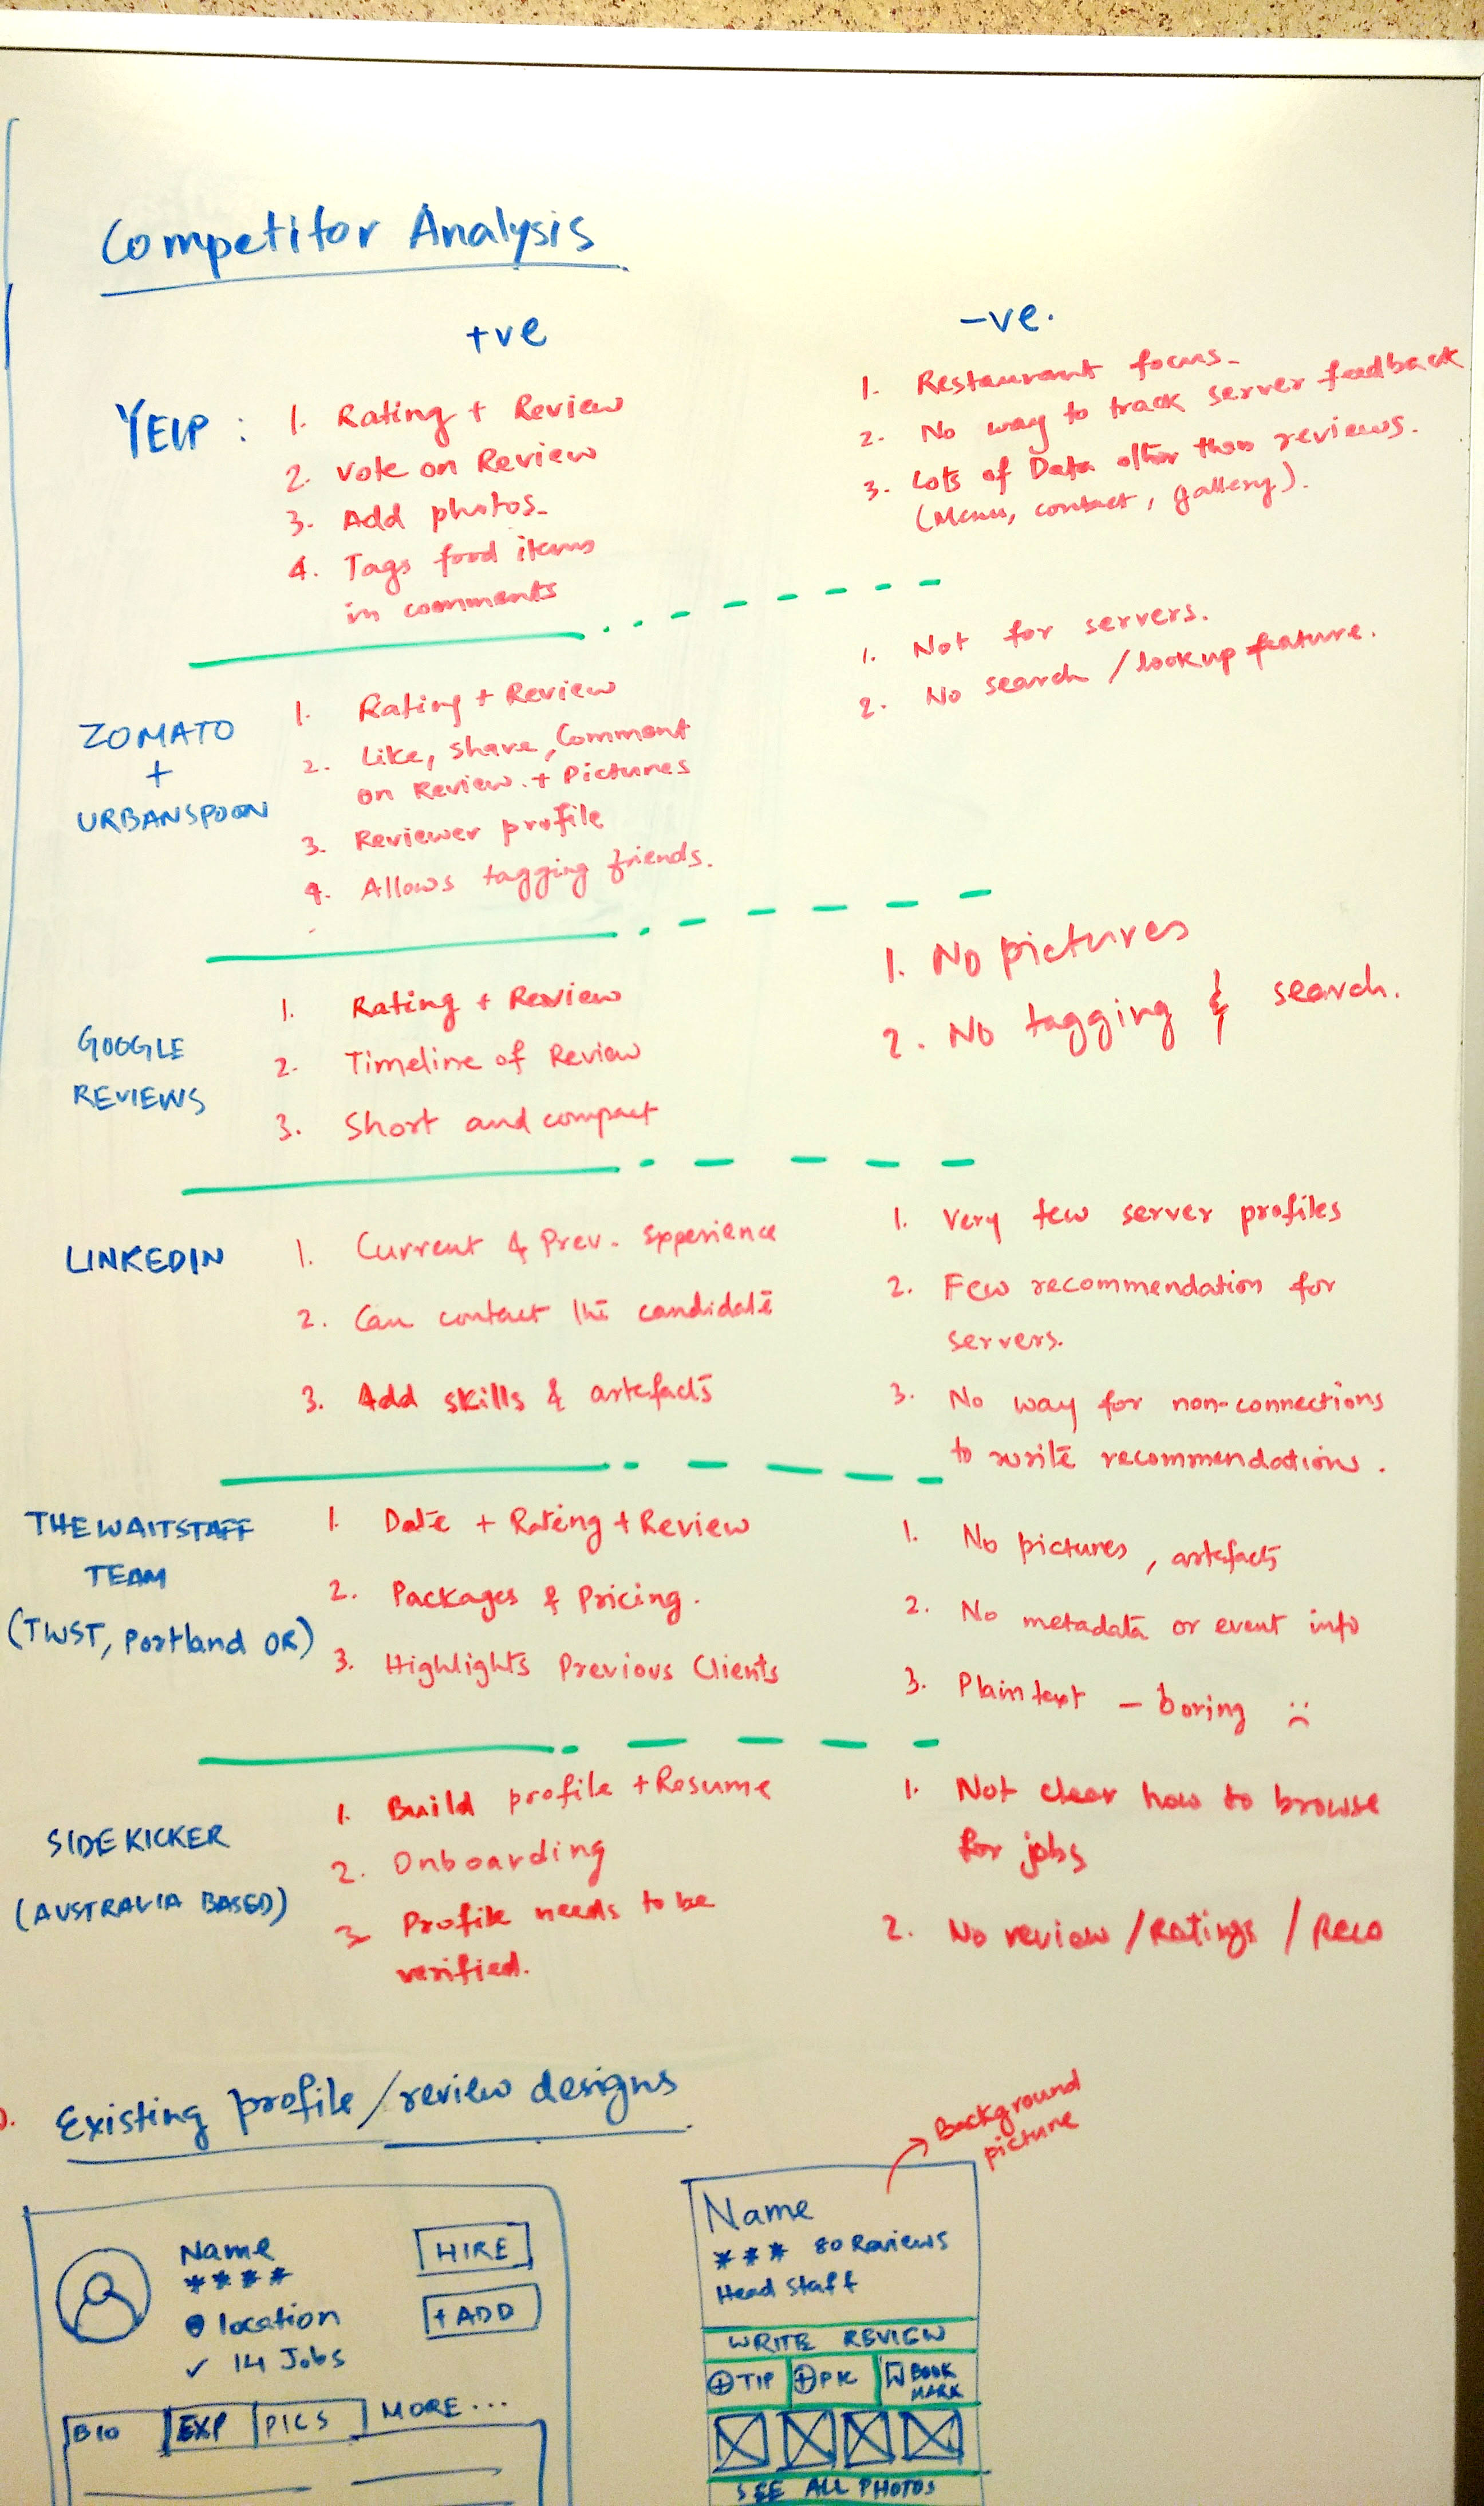 Competitor Analysis
+ve
-ve.
YELP :
1. Rating + Review
2. Vote on Review
3. Add photos.
4. Tags food items
in comments
1. Restaurant focus.
2. No way to track server feedback
3. Lots of Data other than reviews.
(Menu, contact, gallery).
ZOMATO
+
URBANSPOON
1. Rating + Review
2. Like, share, Comment
on Review. + Pictures
3. Reviewer profile
4. Allows tagging friends.
1. Not for servers.
2. No search / lookup feature.
GOOGLE
REVIEWS
1. Rating + Review
2. Timeline of Review
3. Short and compact
1. No pictures
2. No tagging & search.
LINKEDIN
1. Current & Prev. Experience
2. Can contact the candidate
3. Add skills & artefacts
1. Very few server profiles
2. Few recommendation for
servers.
3. No way for non-connections
to write recommendations.
THE WAITSTAFF
TEAM
(TWST, Portland OR)
1. Date + Rating + Review
2. Packages & Pricing.
3. Highlights Previous Clients
1. No pictures, artefacts
2. No metadata or event info
3. Plain text - boring
SIDEKICKER
(AUSTRALIA BASED)
1. Build profile + Resume
2. Onboarding
3. Profile needs to be
verified.
1. Not clear how to browse
for jobs
2. No review / Ratings / Reco
Existing profile/review designs
Background
picture
Name
****
location
✓ 14 Jobs
HIRE
+ ADD
BIO
EXP
PICS
MORE...
Name
*** 80 Reviews
Head Staff
WRITE REVIEW
+ TIP
+ PIC
BOOK
MARK
SEE ALL PHOTOS